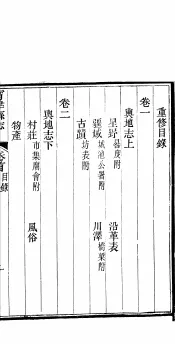 重修目錄
卷一
輿地志上
星野 晷度附 沿革表
疆域 城池公署附 川澤 橋梁附
古蹟 坊表附
卷二
輿地志下
村莊 市集廟會附 風俗
物產
縣志 卷首 目錄